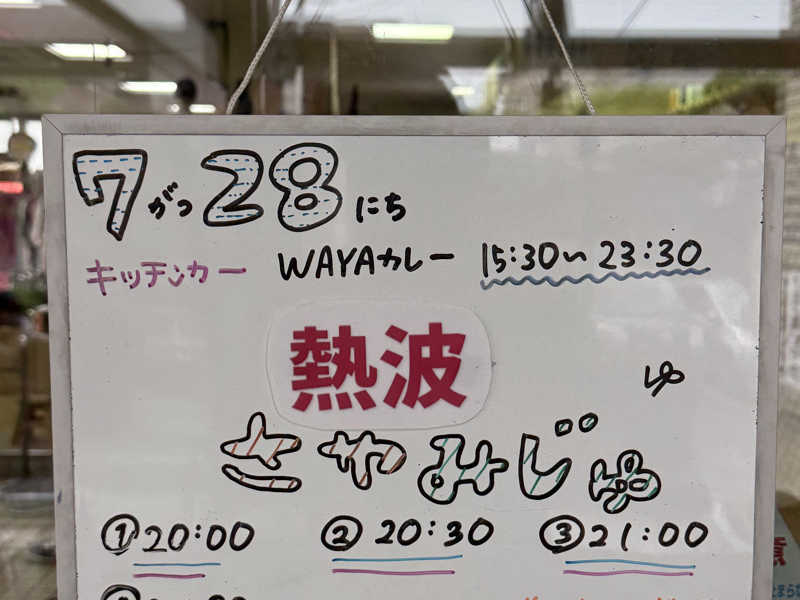 7がつ28にち
キッチンカー WAYAカレー 15:30〜23:30
熱波
ゆ
さやみじゅ
①20:00 ②20:30 ③21:00